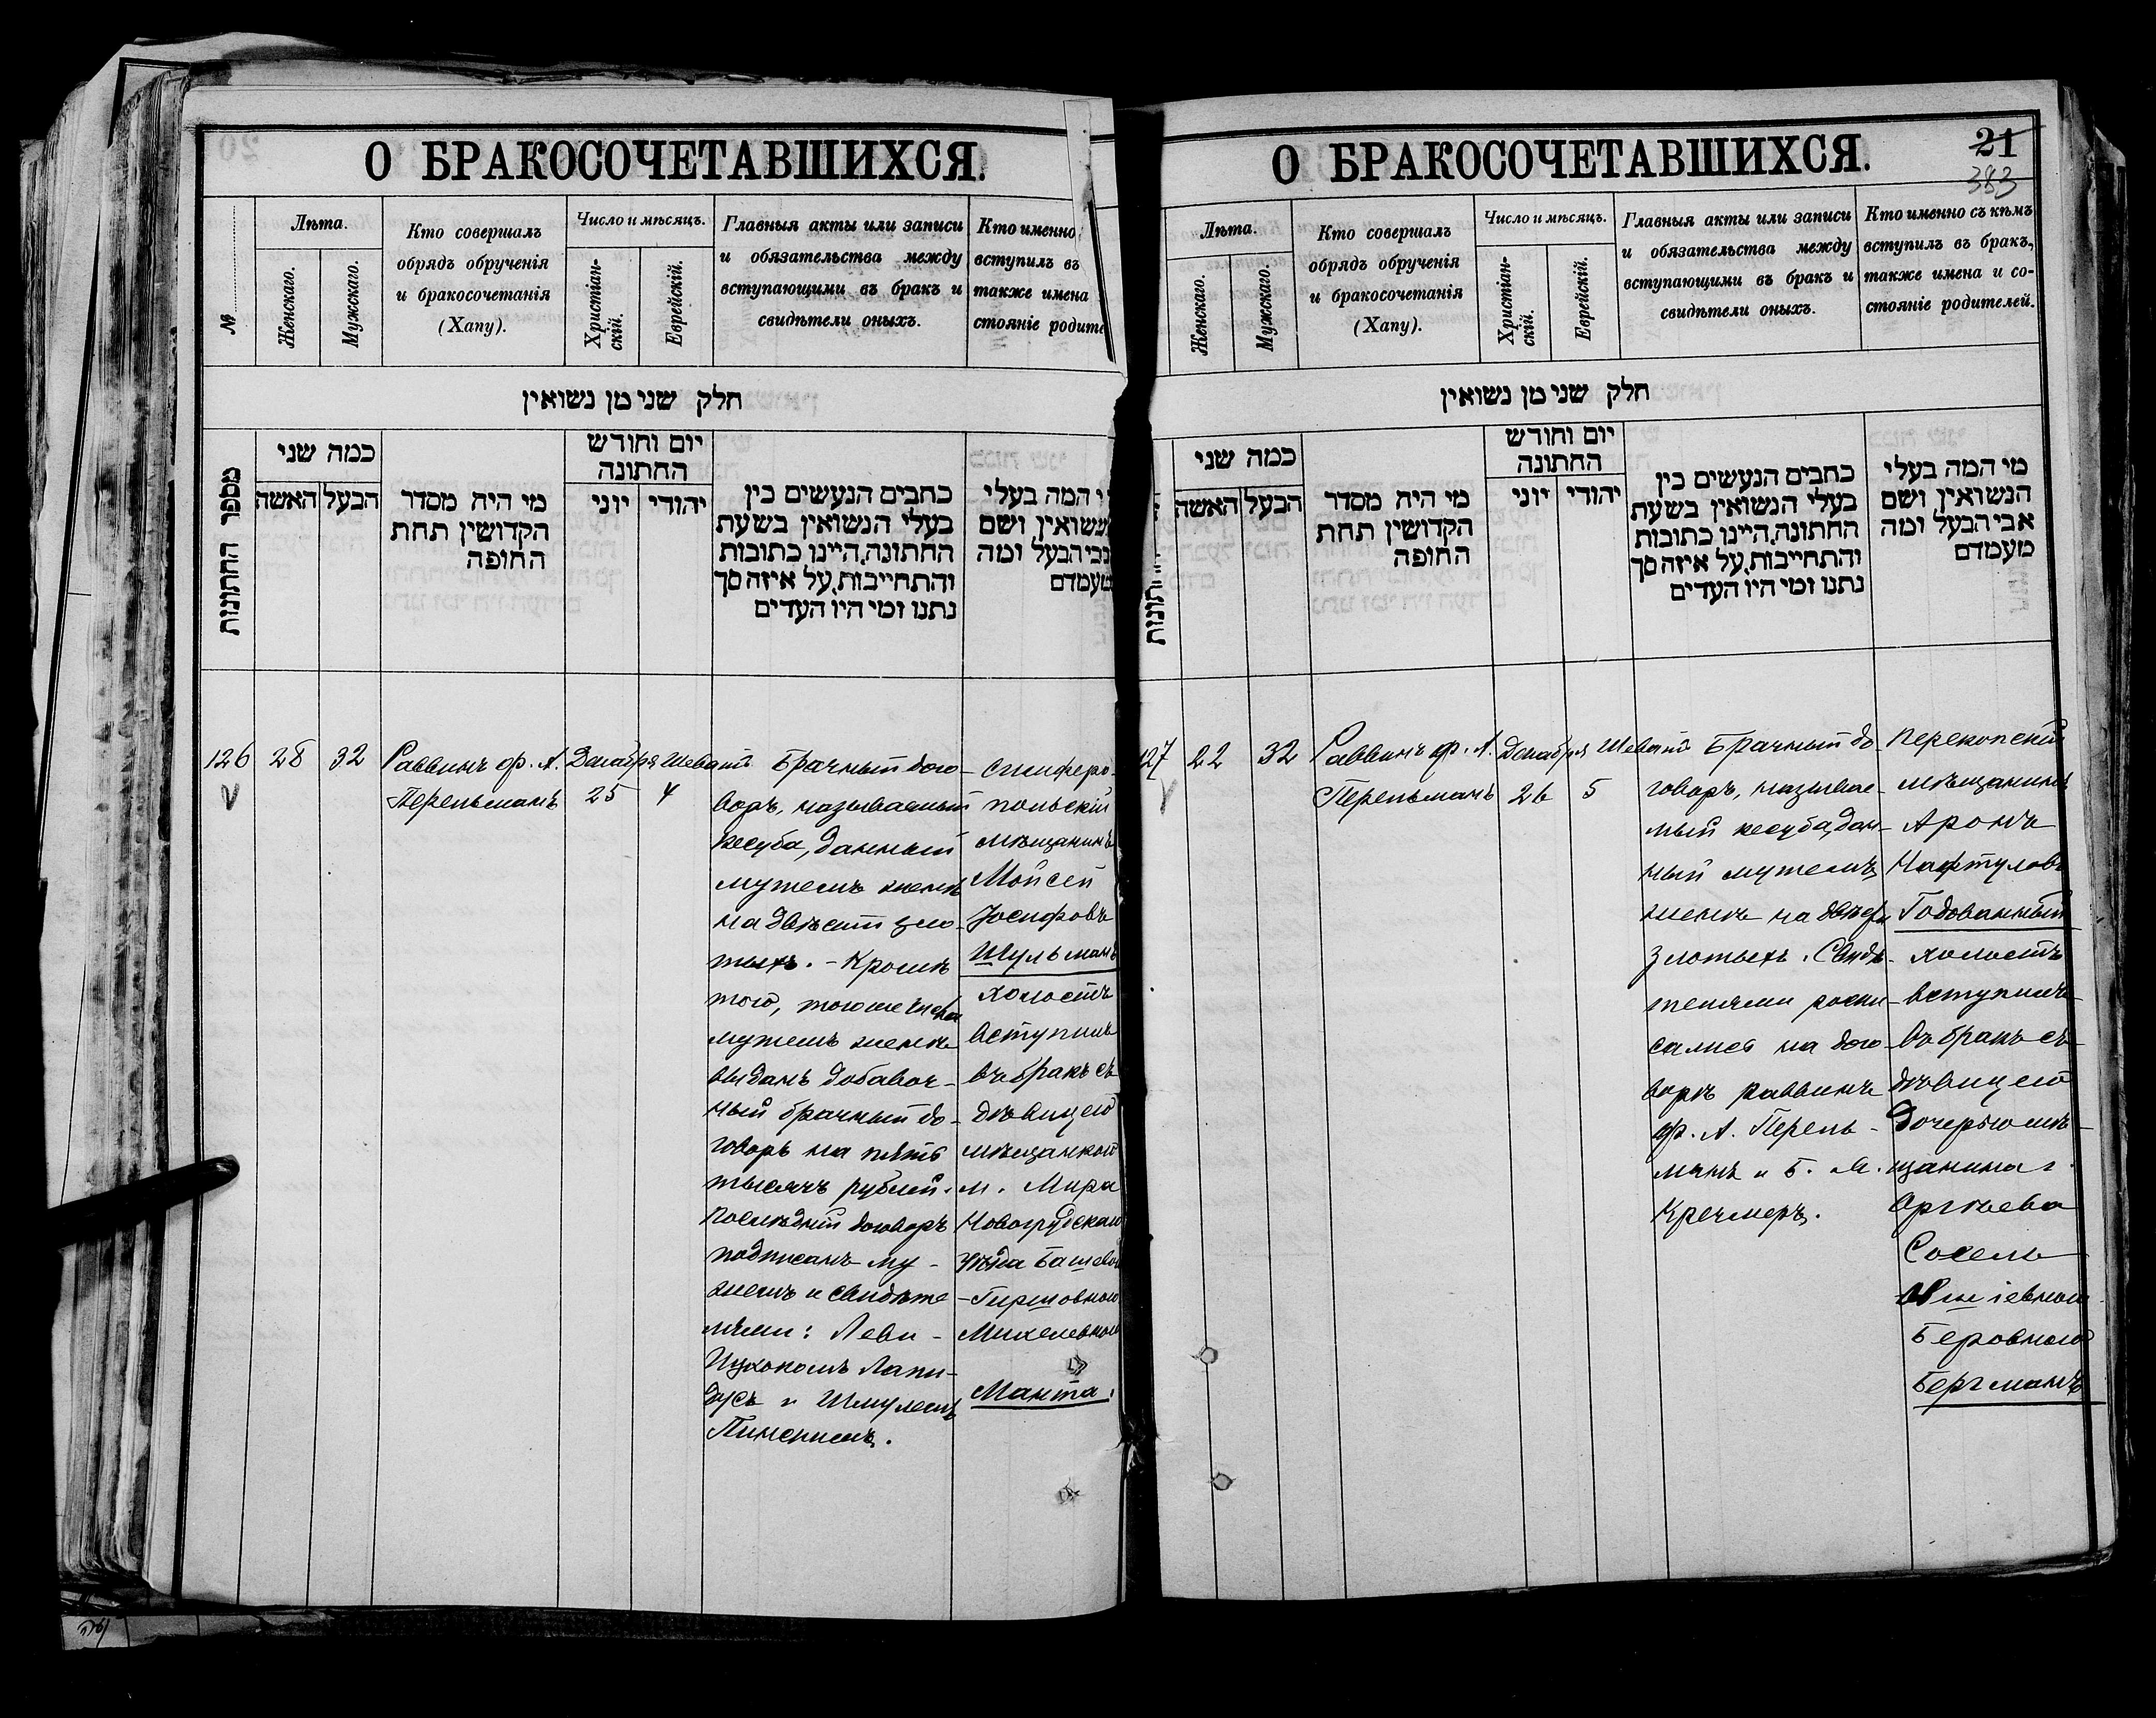 О БРАКОСОЧЕТАВШИХСЯ.
№
Лѣта.
Женскаго.
Мужскаго.
Кто совершалъ
обрядъ обрученія
и бракосочетанія
(Хапу).
Число и мѣсяцъ.
Христіан-
скій.
Еврейскій.
Главныя акты или записи
и обязательства между
вступающими въ бракъ и
свидѣтели оныхъ.
Кто именно
вступилъ въ
также имена
стояніе родите
חלק שני מן נשואין
מספר החתונות
כמה שני
הבעל
האשה
מי היה מסדר
הקדושין תחת
החופה
יום וחודש
החתונה
יהודי
יוני
כתבים הנעשים בין
בעלי הנשואין בשעת
החתונה, היינו כתובות
והתחייבות, על איזה סך
נתנו ומי היו העדים
י המה בעלי
נשואין ושם
אבי הבעל ומה
מעמדם
126
28
32
Раввинъ ф. А.
Перельманъ
Декабря
25
Шеватъ
4
Брачный дого-
воръ, называемый
кесуба, данный
мужемъ женѣ
на двѣсти зло-
тыхъ. - Кромѣ
того, тогоже числа
мужемъ женѣ
выданъ добавоч-
ный брачный до-
говоръ на пять
тысячъ рублей.
Послѣдній договоръ
подписанъ му-
жемъ и свидѣте
лями: Леви-
Ицхокомъ Лапи-
дусъ и Шмулемъ
Пинскимъ.
Симферо-
польскій
мѣщанинъ
Мойсей
Іосифовъ
Шульманъ
холостъ
вступилъ
въ бракъ съ
дѣвицею
мѣщанкою
м. Мира
Новогрудскаго
уѣзда Башевой
-Гиршовною
Михелевною
Манта.
О БРАКОСОЧЕТАВШИХСЯ.
21
383
Лѣта.
Женскаго.
Мужскаго.
Кто совершалъ
обрядъ обрученія
и бракосочетанія
(Хапу).
Число и мѣсяцъ.
Христіан-
скій.
Еврейскій.
Главныя акты или записи
и обязательства между
вступающими въ бракъ и
свидѣтели оныхъ.
Кто именно съ кѣмъ
вступилъ въ бракъ,
также имена и со-
стояніе родителей.
חלק שני מן נשואין
תונות
כמה שני
הבעל
האשה
מי היה מסדר
הקדושין תחת
החופה
יום וחודש
החתונה
יהודי
יוני
כתבים הנעשים בין
בעלי הנשואין בשעת
החתונה, היינו כתובות
והתחייבות, על איזה סך
נתנו ומי היו העדים
מי המה בעלי
הנשואין ושם
אבי הבעל ומה
מעמדם
127
22
32
Раввинъ ф. А.
Перельманъ
Декабря
26
Шеватъ
5
Брачный до-
говоръ, называе-
мый кесуба, дан-
ный мужемъ
женѣ на двѣсти
злотыхъ. Свидѣ-
телями роспи-
сались на дого-
ворѣ раввинъ
ф. А. Перель-
манъ и Б. М.
Кречмеръ.
Перекопскій
мѣщанинъ
Аронъ
Нафтуловъ
Годованный
холостъ
вступилъ
въ бракъ съ
дѣвицею
дочерью мѣ-
щанина г.
Оргѣева
Сосель
Беровною
Бергманъ